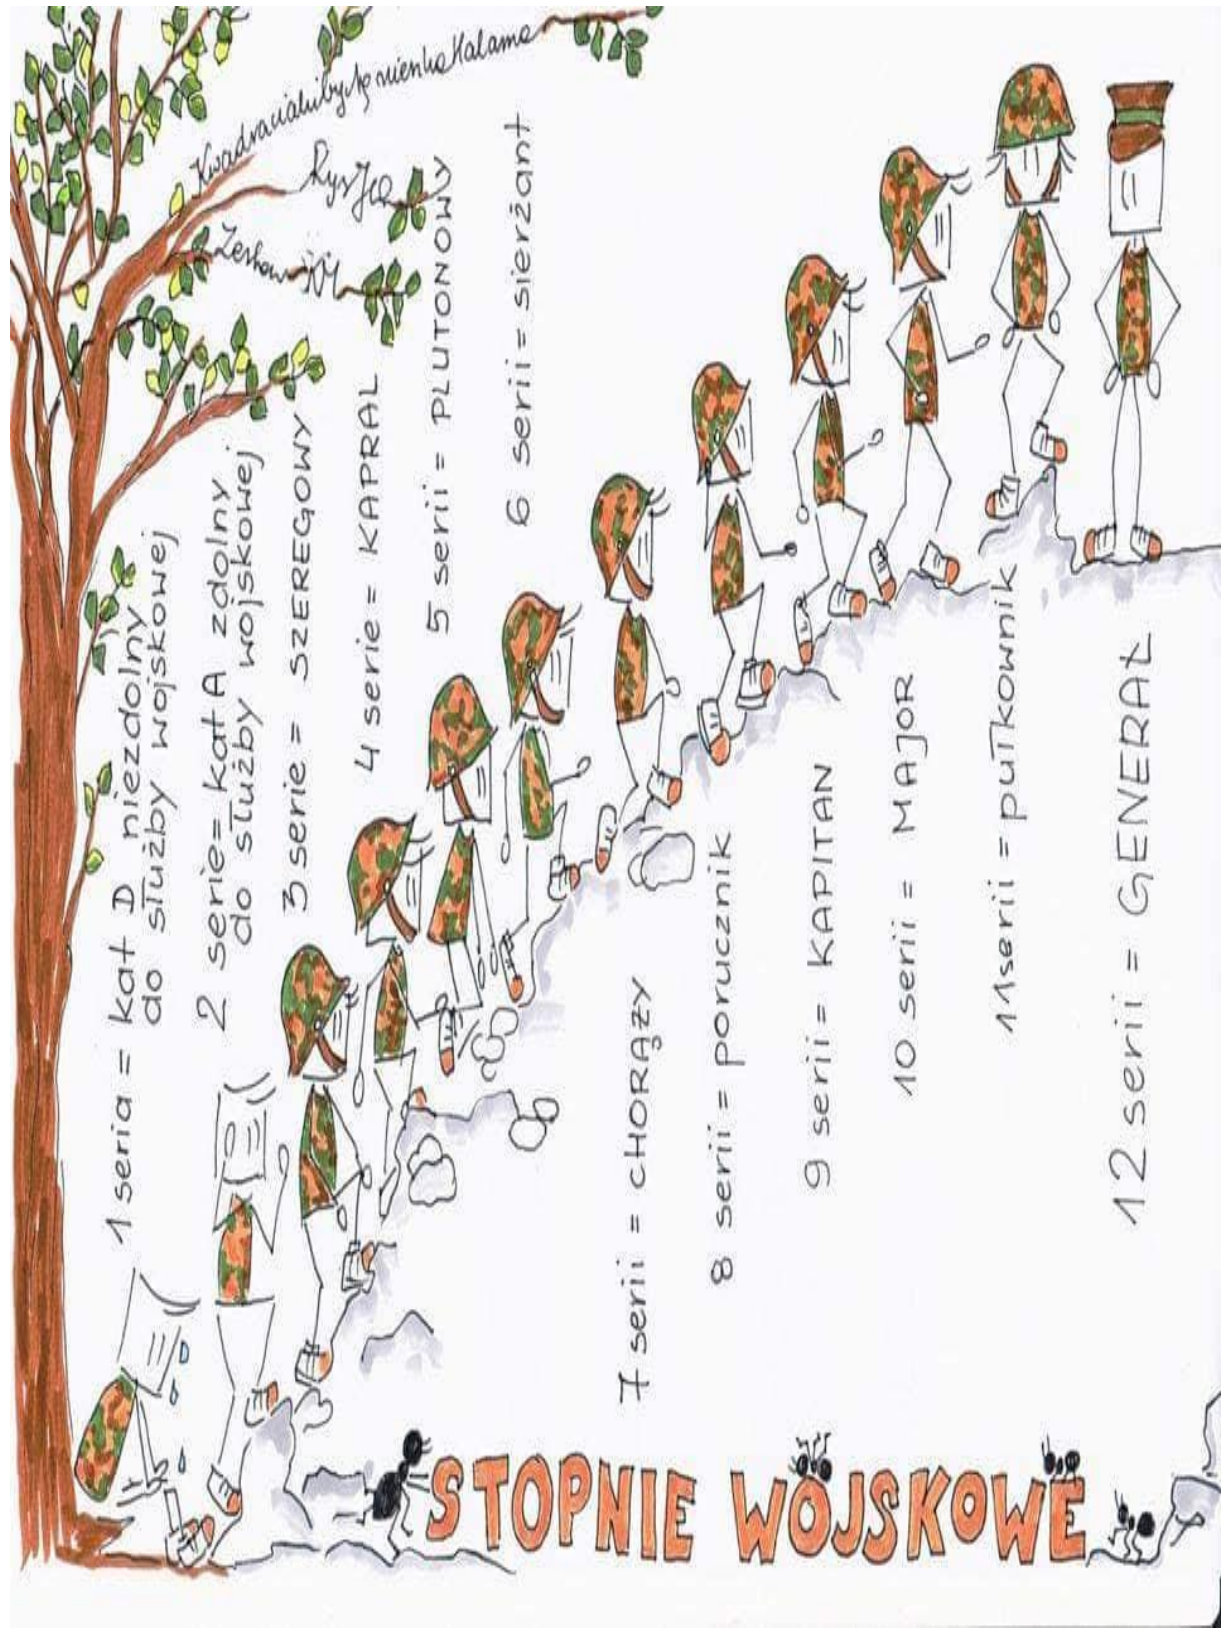 1 seria = kat D niezdolny
do służby wojskowej
2 serie = kat A zdolny
do służby wojskowej
3 serie = SZEREGOWY
4 serie = KAPRAL
5 serii = PLUTONOWY
6 serii = sierżant
7 serii = CHORĄŻY
8 serii = porucznik
9 serii = KAPITAN
10 serii = MAJOR
11 serii = pułkownik
12 serii = GENERAŁ
STOPNIE WOJSKOWE
Halama
Rys